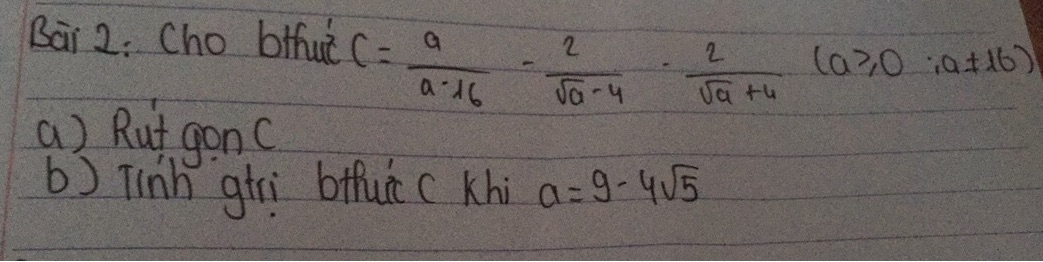 Bài 2: Cho bthức C = a/(a-16) - 2/(√a-4) - 2/(√a+4) (a≥0; a≠16)
a) Rút gọn C
b) Tính gtrị bthức C khi a=9-4√5